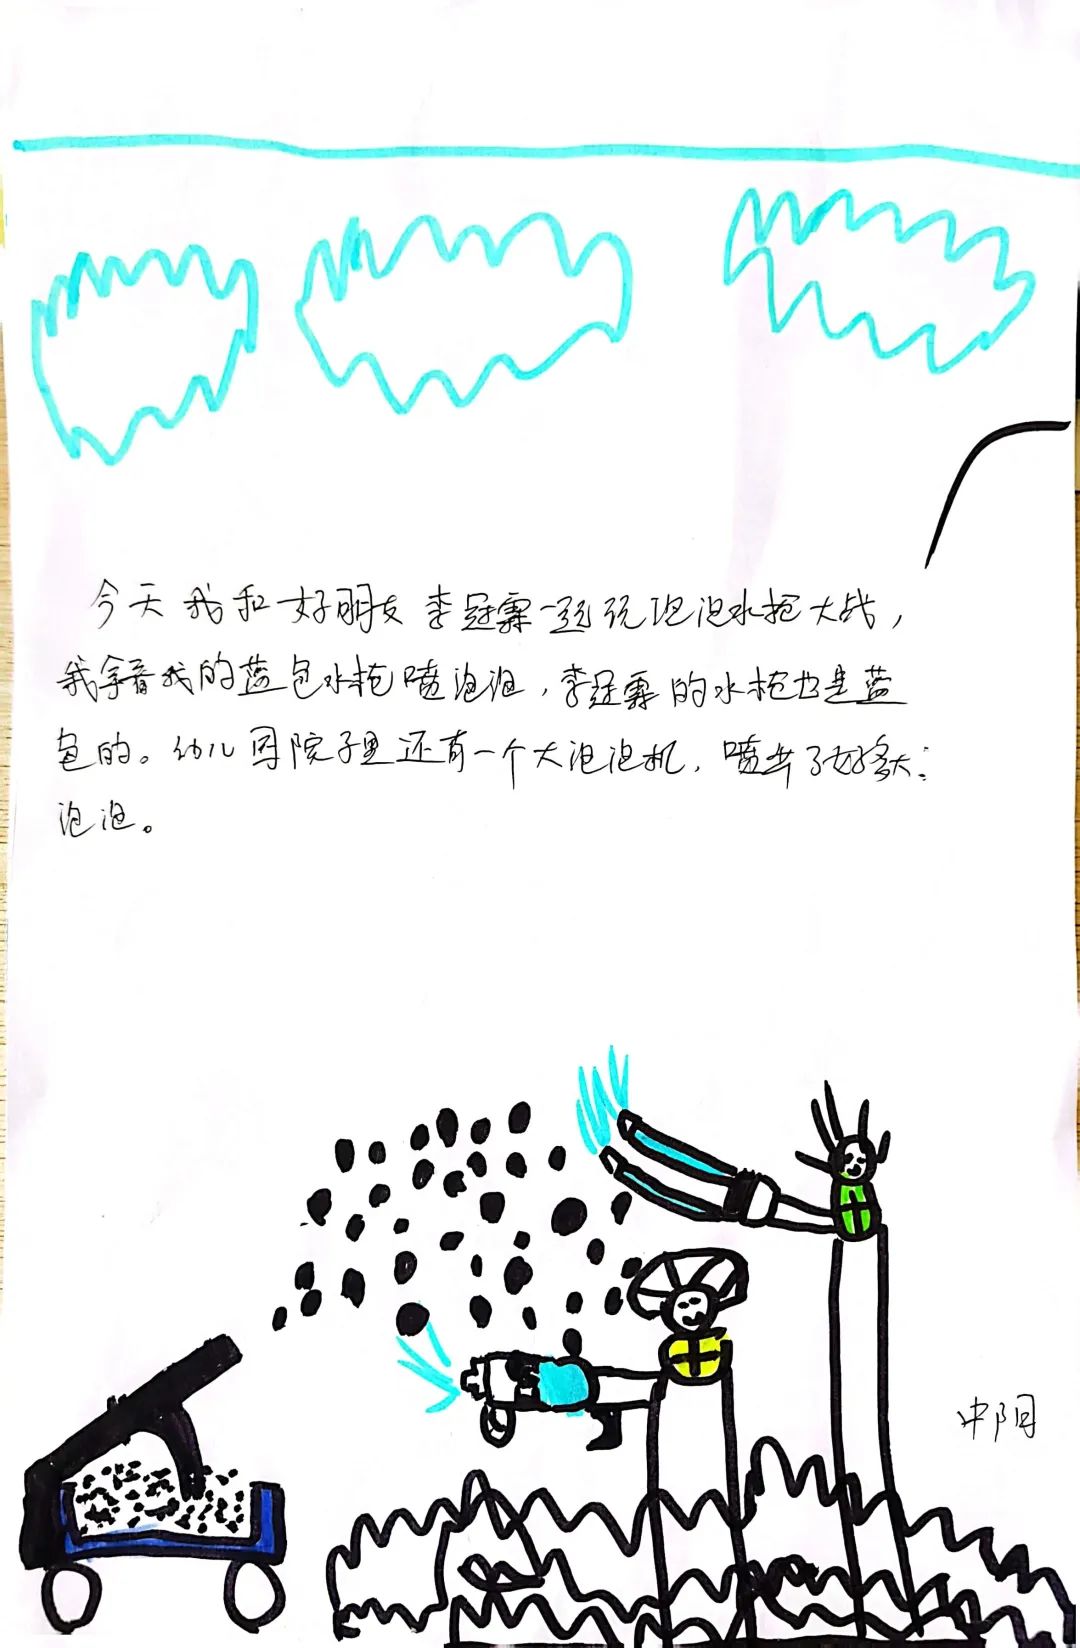 今天我和好朋友李冠霖一起玩泡泡水枪大战，
我拿着我的蓝色水枪喷泡泡，李冠霖的水枪也是蓝
色的。幼儿园院子里还有一个大泡泡机，喷出了好多大
泡泡。
中阳